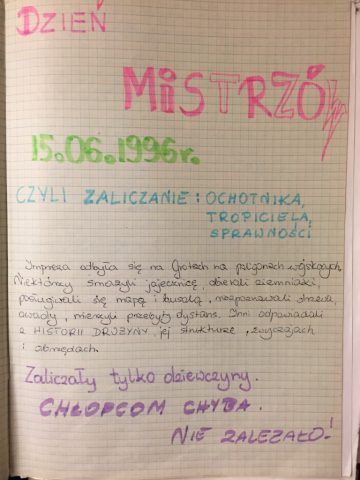 DZIEŃ
MISTRZÓW
15.06.1996r.
CZYLI ZALICZANIE: OCHOTNIKA,
TROPICIELA,
SPRAWNOŚCI
Impreza odbyła się na Grotach na poligonach wojskowych.
Niektórzy smażyli jajecznicę, obierali ziemniaki,
posługiwali się mapą i busolą, rozpoznawali drzewa,
owady, mierzyli przebyty dystans. Inni odpowiadali
z HISTORII DRUŻYNY, jej strukturze, zwyczajach
i obrzędach.
Zaliczały tylko dziewczyny.
CHŁOPCOM CHYBA
NIE ZALEŻAŁO!